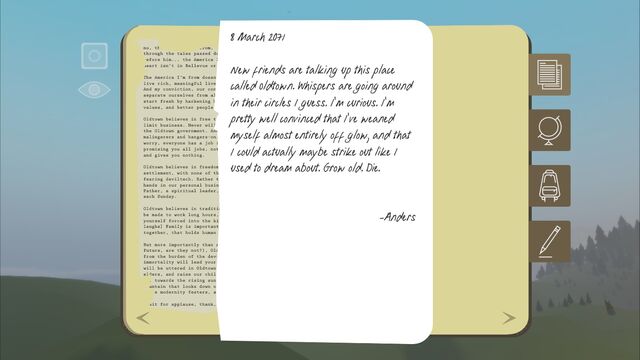 8 March 2071
New friends are talking up this place
called oldtown. Whispers are going around
in their circles I guess. I'm curious. I'm
pretty well convinced that I've weaned
myself almost entirely off glow, and that
I could actually maybe strike out like I
used to dream about. Grow old. Die.
-Anders
through the tales passed
before him... the America
heart isn't in Bellevue
The America I'm from
live rich, meaningful
And my conviction, our
separate ourselves from
start fresh by harkening
values, and better people
Oldtown believes in free
limit business. Never will
the Oldtown government. And
malingerers and hangers-on
worry, everyone has a job
promising you all jobs,
and gives you nothing.
Oldtown believes in freedom
settlement, with none of
fearing deviltech. Rather
hands in our personal
Father, a spiritual leader,
each Sunday.
Oldtown believes in
be made to work long hours,
yourself forced into the
Family is important
together, that holds human
But more importantly than
future, are they not?),
from the burden of the
immortality will lead your
will be uttered in Oldtown
elders, and raise our
towards the rising
mountain that looks down
modernity festers,
wait for applause, thank